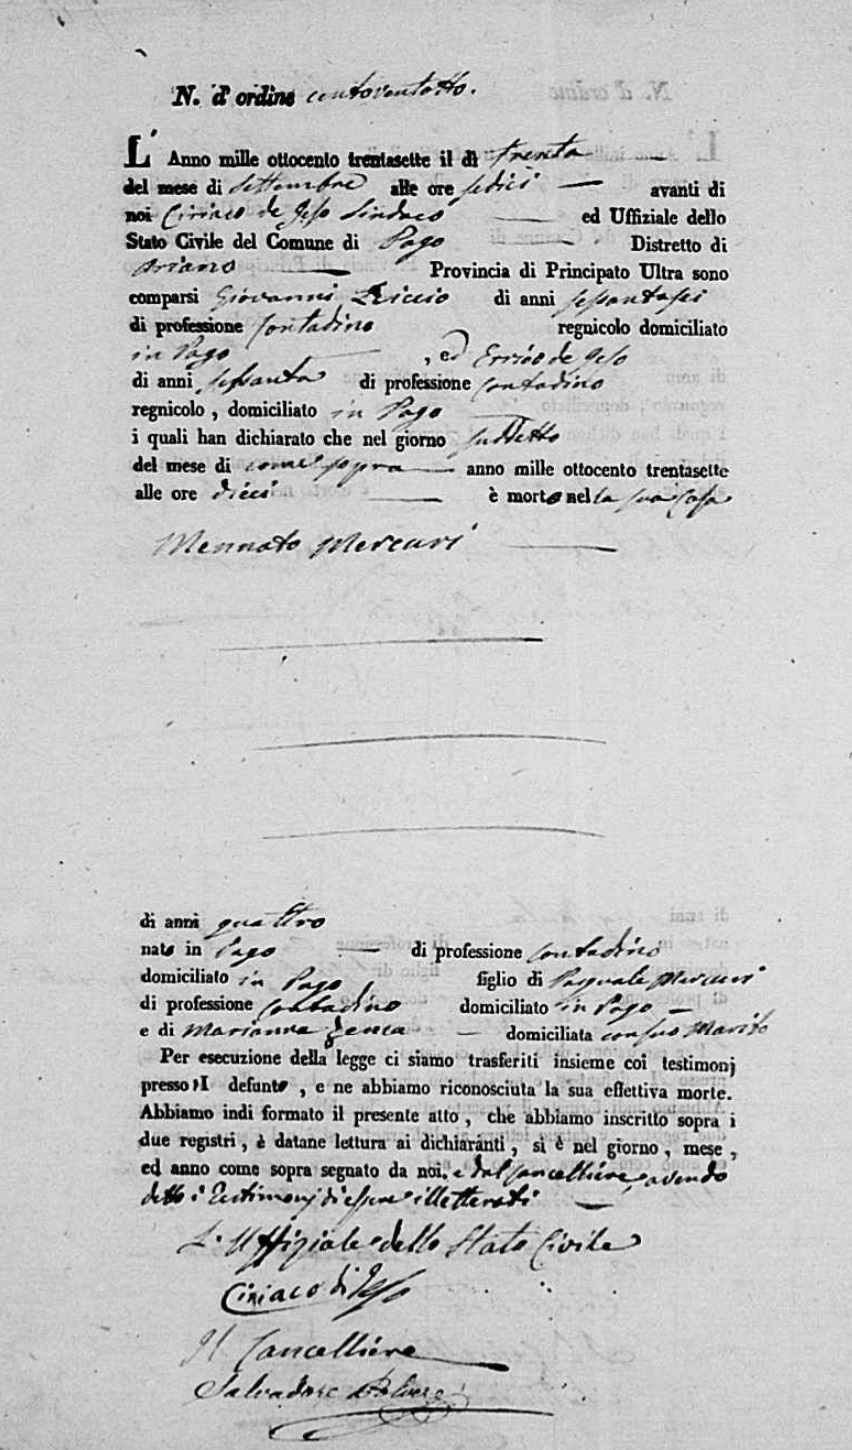 N. d'ordine centoventotto.
L'Anno mille ottocento trentasette il dì trenta
del mese di settembre alle ore sedici avanti di
noi Ciriaco de Geso Sindaco ed Uffiziale dello
Stato Civile del Comune di Pago Distretto di
Ariano Provincia di Principato Ultra sono
comparsi Giovanni di anni sessantasei
di professione Contadino regnicolo domiciliato
in Pago , ed Errico de Geso
di anni sessanta di professione Contadino
regnicolo , domiciliato in Pago
i quali han dichiarato che nel giorno suddetto
del mese di come sopra anno mille ottocento trentasette
alle ore dieci è morto nella sua Casa
Mennato Mercuri
di anni quattro
nato in Pago di professione Contadino
domiciliato in Pago figlio di Pasquale Mercuri
di professione Contadino domiciliato in Pago
e di Marianna domiciliata con suo Marito
Per esecuzione della legge ci siamo trasferiti insieme coi testimonj
presso il defunto , e ne abbiamo riconosciuta la sua effettiva morte.
Abbiamo indi formato il presente atto , che abbiamo inscritto sopra i
due registri , è datane lettura ai dichiaranti , si è nel giorno , mese ,
ed anno come sopra segnato da noi. e dal Cancelliere, avendo
detto i Testimonj di essere illetterati
L'Uffiziale dello Stato Civile
Ciriaco di Geso
Il Cancelliere
Salvadore